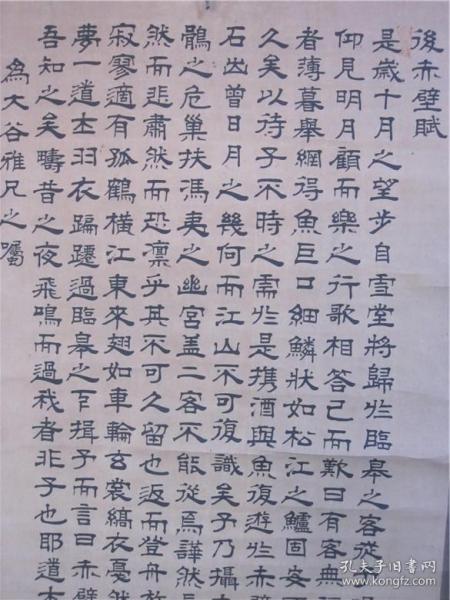 後赤壁賦
是歲十月之望步自雪堂將歸於臨皋之客從
仰見明月顧而樂之行歌相答已而歎曰有客無
者薄暮舉網得魚巨口細鱗狀如松江之鱸固安
久矣以待子不時之需於是携酒與魚復遊於赤壁
石出曾日月之幾何而江山不可復識矣予乃攝
鶻之危巢扶馮夷之幽宮盖二客不能從焉譁然
然而悲肅然而恐凛乎其不可久留也返而登舟放
寂寥適有孤鶴橫江東來翅如車輪玄裳縞衣戛然
夢一道士羽衣蹁躚過臨皋之下揖予而言曰赤壁
吾知之矣疇昔之夜飛鳴而過我者非子也耶道士
為大谷雅兄之囑
孔夫子旧书网
www.kongfz.com